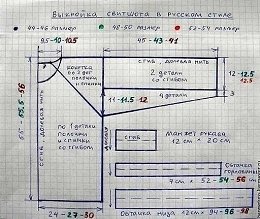 Выкройка свитшота в русском стиле
44-46 размер 48-50 размер 52-54 размер
9.5-10-10.5
45-43-41
сгиб, долевая нить
кокетка
2 дет
со сгибом
2 детали
со сгибом
12-12.5
12.5
3
11-11.5-12
55-55.5-56
сгиб, долевая нить
по 1 детали
полочки
и спинки
со сгибом
сгиб
Манжет рукава
12 см х 20 см
Обтачка
горловины
7 см х 52-54-56 см
24-27-30
Обтачка низа 12 см х 94-96-98